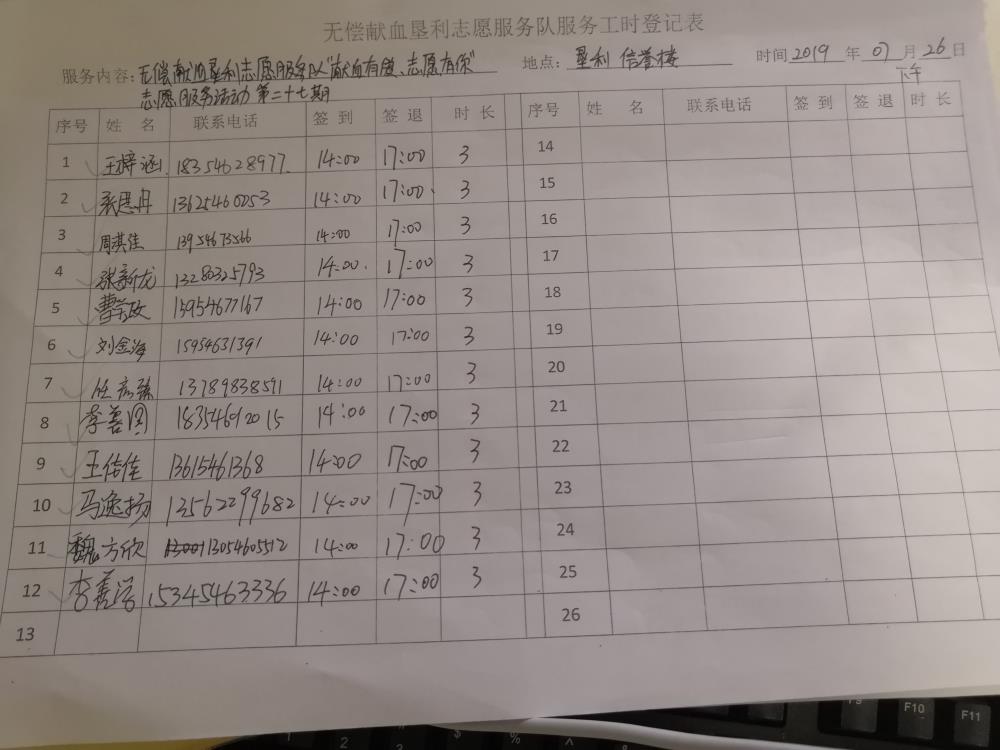 无偿献血垦利志愿服务队服务工时登记表
服务内容：无偿献血垦利志愿服务队“献血有度、志愿有你” 地点：垦利 信誉楼 时间 2019 年 07 月 26 日
志愿服务活动 第二十七期 下午
序号 姓 名 联系电话 签 到 签 退 时 长 序号 姓 名 联系电话 签 到 签 退 时 长
1 王梓涵 18354628977 14:00 17:00 3 14
2 张思冉 13625460053 14:00 17:00 3 15
3 周淇佳 13954673566 14:00 17:00 3 16
4 张新龙 13280325793 14:00 17:00 3 17
5 曹 15954677167 14:00 17:00 3 18
6 刘金海 15954631391 14:00 17:00 3 19
7 任 13789838591 14:00 17:00 3 20
8 李善 18354692015 14:00 17:00 3 21
9 王佶佳 13615461368 14:00 17:00 3 22
10 马逸扬 13562299682 14:00 17:00 3 23
11 魏方欣 13054605512 14:00 17:00 3 24
12 李善 15345463336 14:00 17:00 3 25
13 26
F9 F10 F11